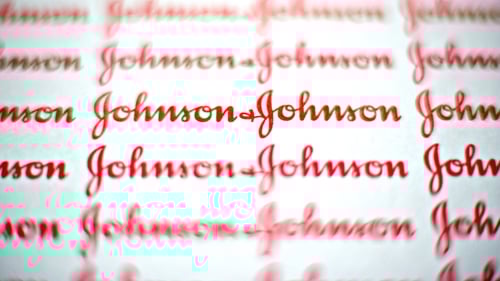 Johnson Johnson
nson Johnson & Johnson John
nson Johnson & Johnson John
son Johnson & Johnson John
son Johnson & Johnson Joh